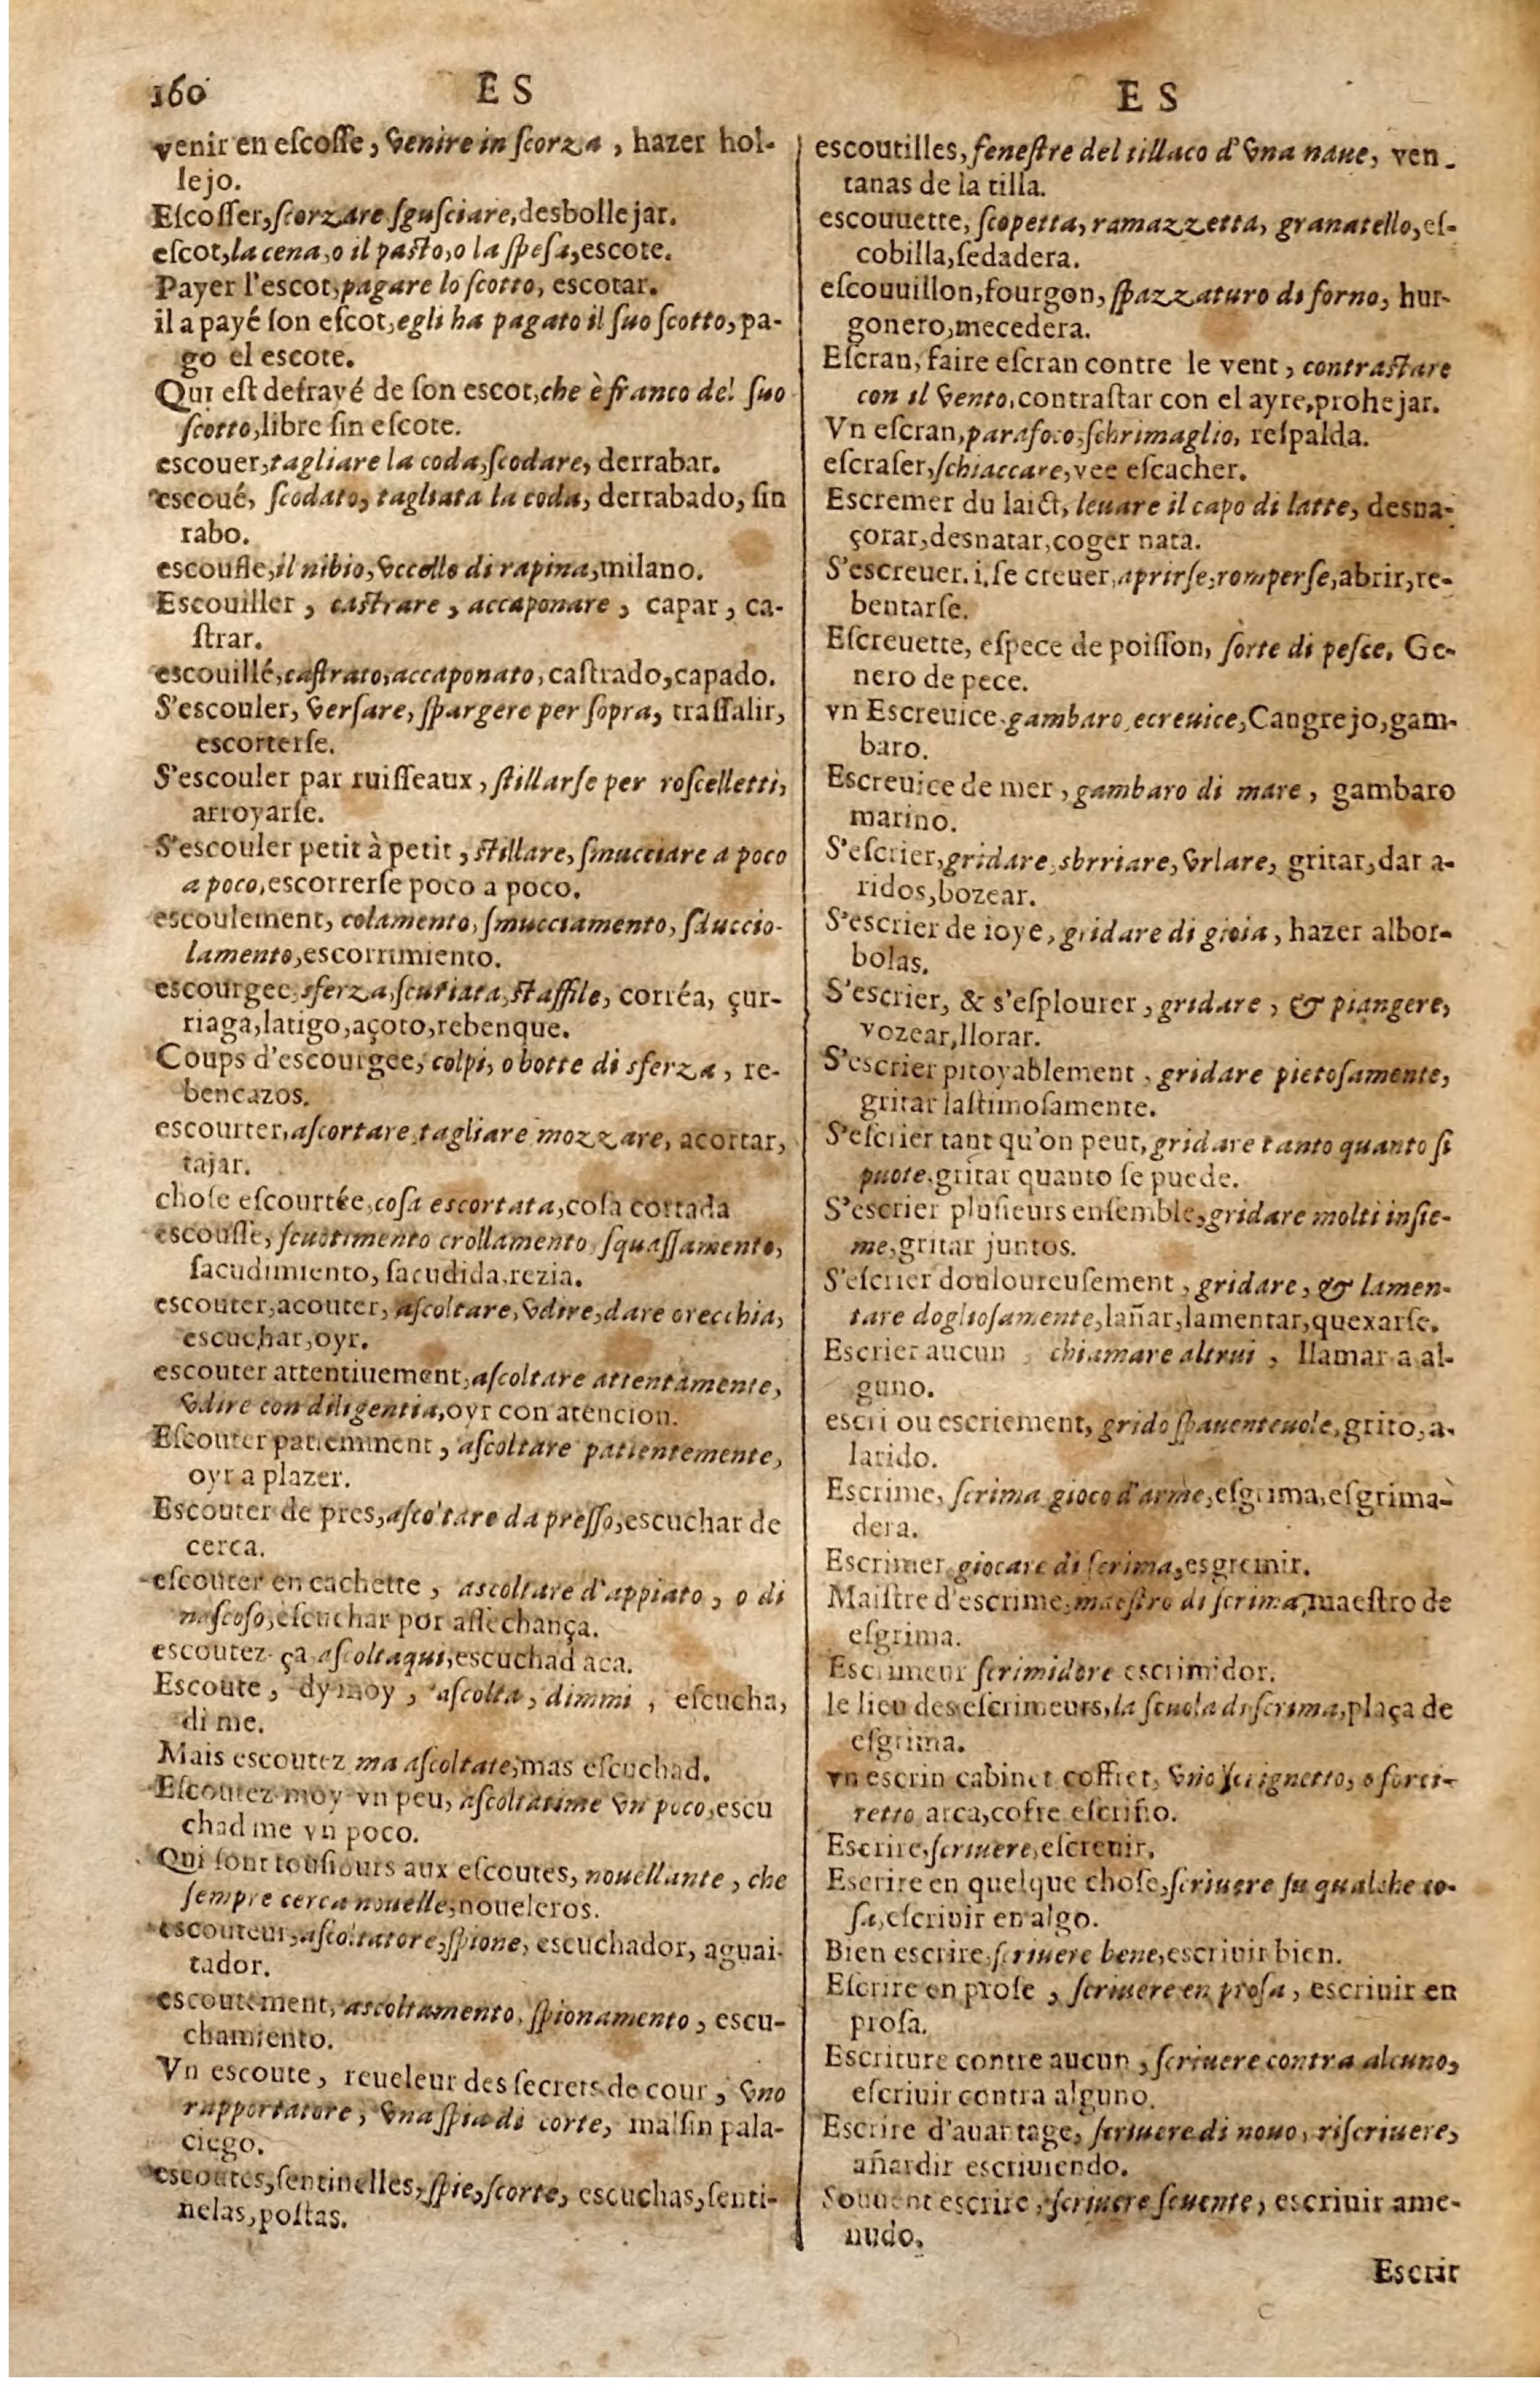 160 E S
venir en eſcoſſe, venire in ſcorza, hazer hol-
lejo.
Eſcoſſer, ſcorzare ſguſciare, desbollejar.
eſcot, la cena, o il paſto, o la ſpeſa, escote.
Payer l'escot, pagare lo ſcotto, escotar.
il a payé ſon eſcot, egli ha pagato il ſuo ſcotto, pa-
go el escote.
Qui eſt defrayé de ſon escot, che è franco del ſuo
ſcotto, libre ſin eſcote.
escouer, tagliare la coda, ſcodare, derrabar.
escoué, ſcodato, tagliata la coda, derrabado, ſin
rabo.
escoufle, il nibio, vccello di rapina, milano.
Escouiller, caſtrare, accaponare, capar, ca-
ſtrar.
escouillé, caſtrato, accaponato, caſtrado, capado.
S'escouler, verſare, ſpargere per ſopra, traſſalir,
escorterſe.
S'escouler par ruiſſeaux, ſtillarſe per roſcelletti,
arroyarſe.
S'escouler petit à petit, ſtillare, ſmucciare a poco
a poco, escorrerſe poco a poco.
escoulement, colamento, ſmucciamento, ſduccio-
lamento, escorrimiento.
escourgee, sferza, ſcuriata, ſtaffile, corréa, çur-
riaga, latigo, açoto, rebenque.
Coups d'escourgee, colpi, o botte di sferza, re-
bencazos.
escourter, aſcortare, tagliare mozzare, acortar,
tajar.
choſe eſcourtée, coſa escortata, coſa cortada
escouſſe, ſcuotimento crollamento, ſquaſſamento,
ſacudimiento, ſacudida, rezia.
escouter, acouter, aſcoltare, vdire, dare orecchia,
escuchar, oyr.
escouter attentiuement, aſcoltare attentamente,
vdire con diligentia, oyr con atencion.
Eſcouter patiemment, aſcoltare patientemente,
oyr a plazer.
Escouter de pres, aſcoltare da preſſo, escuchar de
cerca.
eſcouter en cachette, ascoltare d'appiato, o di
naſcoſo, eſcuchar por aſſechança.
escoutez ça aſcolta qui, escuchad aca.
Escoute, dy moy, aſcolta, dimmi, eſcucha,
di me.
Mais escoutez ma aſcoltate, mas eſcuchad.
Eſcoutez moy vn peu, aſcoltatime vn poco, escu
chad me vn poco.
Qui ſont touſiours aux eſcoutes, nouellante, che
ſempre cerca nouelle, noueleros.
escouteur, aſcoltatore, ſpione, escuchador, aguai-
tador.
escoutement, ascoltamento, ſpionamento, escu-
chamiento.
Vn escoute, reueleur des ſecrets de cour, vno
rapportatore, vna ſpia di corte, malſin pala-
ciego.
escoutes, ſentinelles, ſpie, ſcorte, escuchas, ſenti-
nelas, poſtas.
E S
escoutilles, feneſtre del tillaco d'vna naue, ven-
tanas de la tilla.
escouuette, ſcopetta, ramazzetta, granatello, eſ-
cobilla, ſedadera.
eſcouuillon, fourgon, ſpazzaturo di forno, hur-
gonero, mecedera.
Eſcran, faire eſcran contre le vent, contraſtare
con il vento, contraſtar con el ayre, prohejar.
Vn eſcran, parafoco, ſchrimaglio, reſpalda.
eſcraſer, ſchiaccare, vee eſcacher.
Escremer du laict, leuare il capo di latte, desna-
çorar, desnatar, coger nata.
S'escreuer. i. ſe creuer, aprirſe, romperſe, abrir, re-
bentarſe.
Eſcreuette, eſpece de poiſſon, ſorte di peſce. Ge-
nero de pece.
vn Escreuice, gambaro, ecreuice, Cangrejo, gam-
baro.
Escreuice de mer, gambaro di mare, gambaro
marino.
S'eſcrier, gridare, sbrriare, vrlare, gritar, dar a-
ridos, bozear.
S'escrier de ioye, gridare di gioia, hazer albor-
bolas.
S'escrier, & s'eſplourer, gridare, & piangere,
vozear, llorar.
S'escrier pitoyablement, gridare pietoſamente,
gritar laſtimoſamente.
S'eſcrier tant qu'on peut, gridare tanto quanto ſi
puote, gritar quanto ſe puede.
S'escrier pluſieurs enſemble, gridare molti inſie-
me, gritar juntos.
S'eſcrier douloureuſement, gridare, & lamen-
tare doglioſamente, lañar, lamentar, quexarſe.
Escrier aucun, chiamare altrui, llamar a al-
guno.
escri ou escriement, grido ſpauenteuole, grito, a-
larido.
Escrime, ſcrima gioco d'arme, eſgrima, eſgrima-
dera.
Escrimer giocare di ſcrima, esgremir.
Maiſtre d'escrime, maeſtro di ſcrima, maeſtro de
eſgrima.
Escrimeur ſcrimidore escrimidor.
le lieu des eſcrimeurs, la ſcuola di ſcrima, plaça de
eſgrima.
vn escrin cabinet coffret, vno ſcrignetto, o forci-
retto arca, cofre eſcriño.
Escrire, ſcriuere, eſcreuir.
Escrire en quelque choſe, ſcriuere ſu qualche co-
ſa, eſcriuir en algo.
Bien escrire, ſcriuere bene, escriuir bien.
Eſcrire en proſe, ſcriuere en proſa, escriuir en
proſa.
Escriture contre aucun, ſcriuere contra alcuno,
eſcriuir contra alguno.
Escrire d'auantage, ſcriuere di nouo, riſcriuere,
añardir escriuiendo.
Souuent escrire, ſcriuere ſeuente, escriuir ame-
nudo.
Escrit